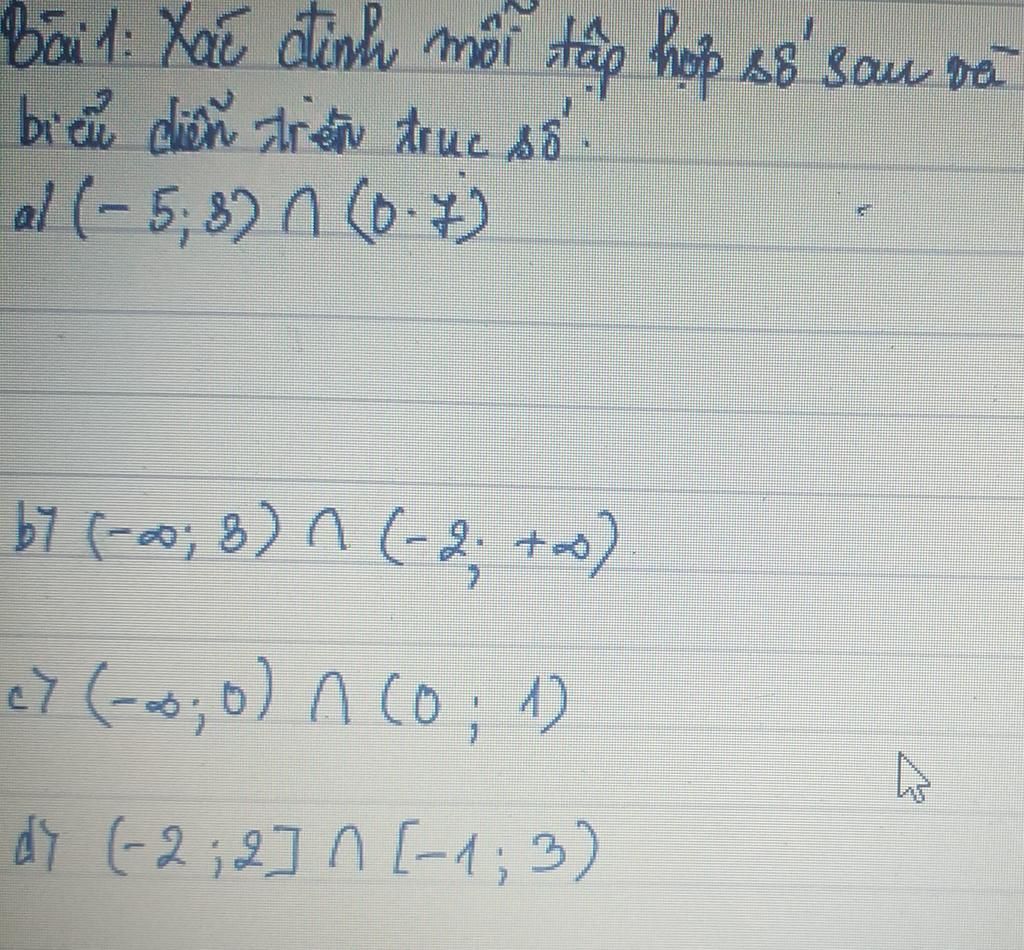 Bài 1: Xác định mỗi tập hợp số sau và
biểu diễn trên trục số.
a/ (- 5; 3) ∩ (0. 7)
b) (-∞; 3) ∩ (-2; +∞)
c) (-∞; 0) ∩ (0; 1)
d) (-2; 2] ∩ [-1; 3)